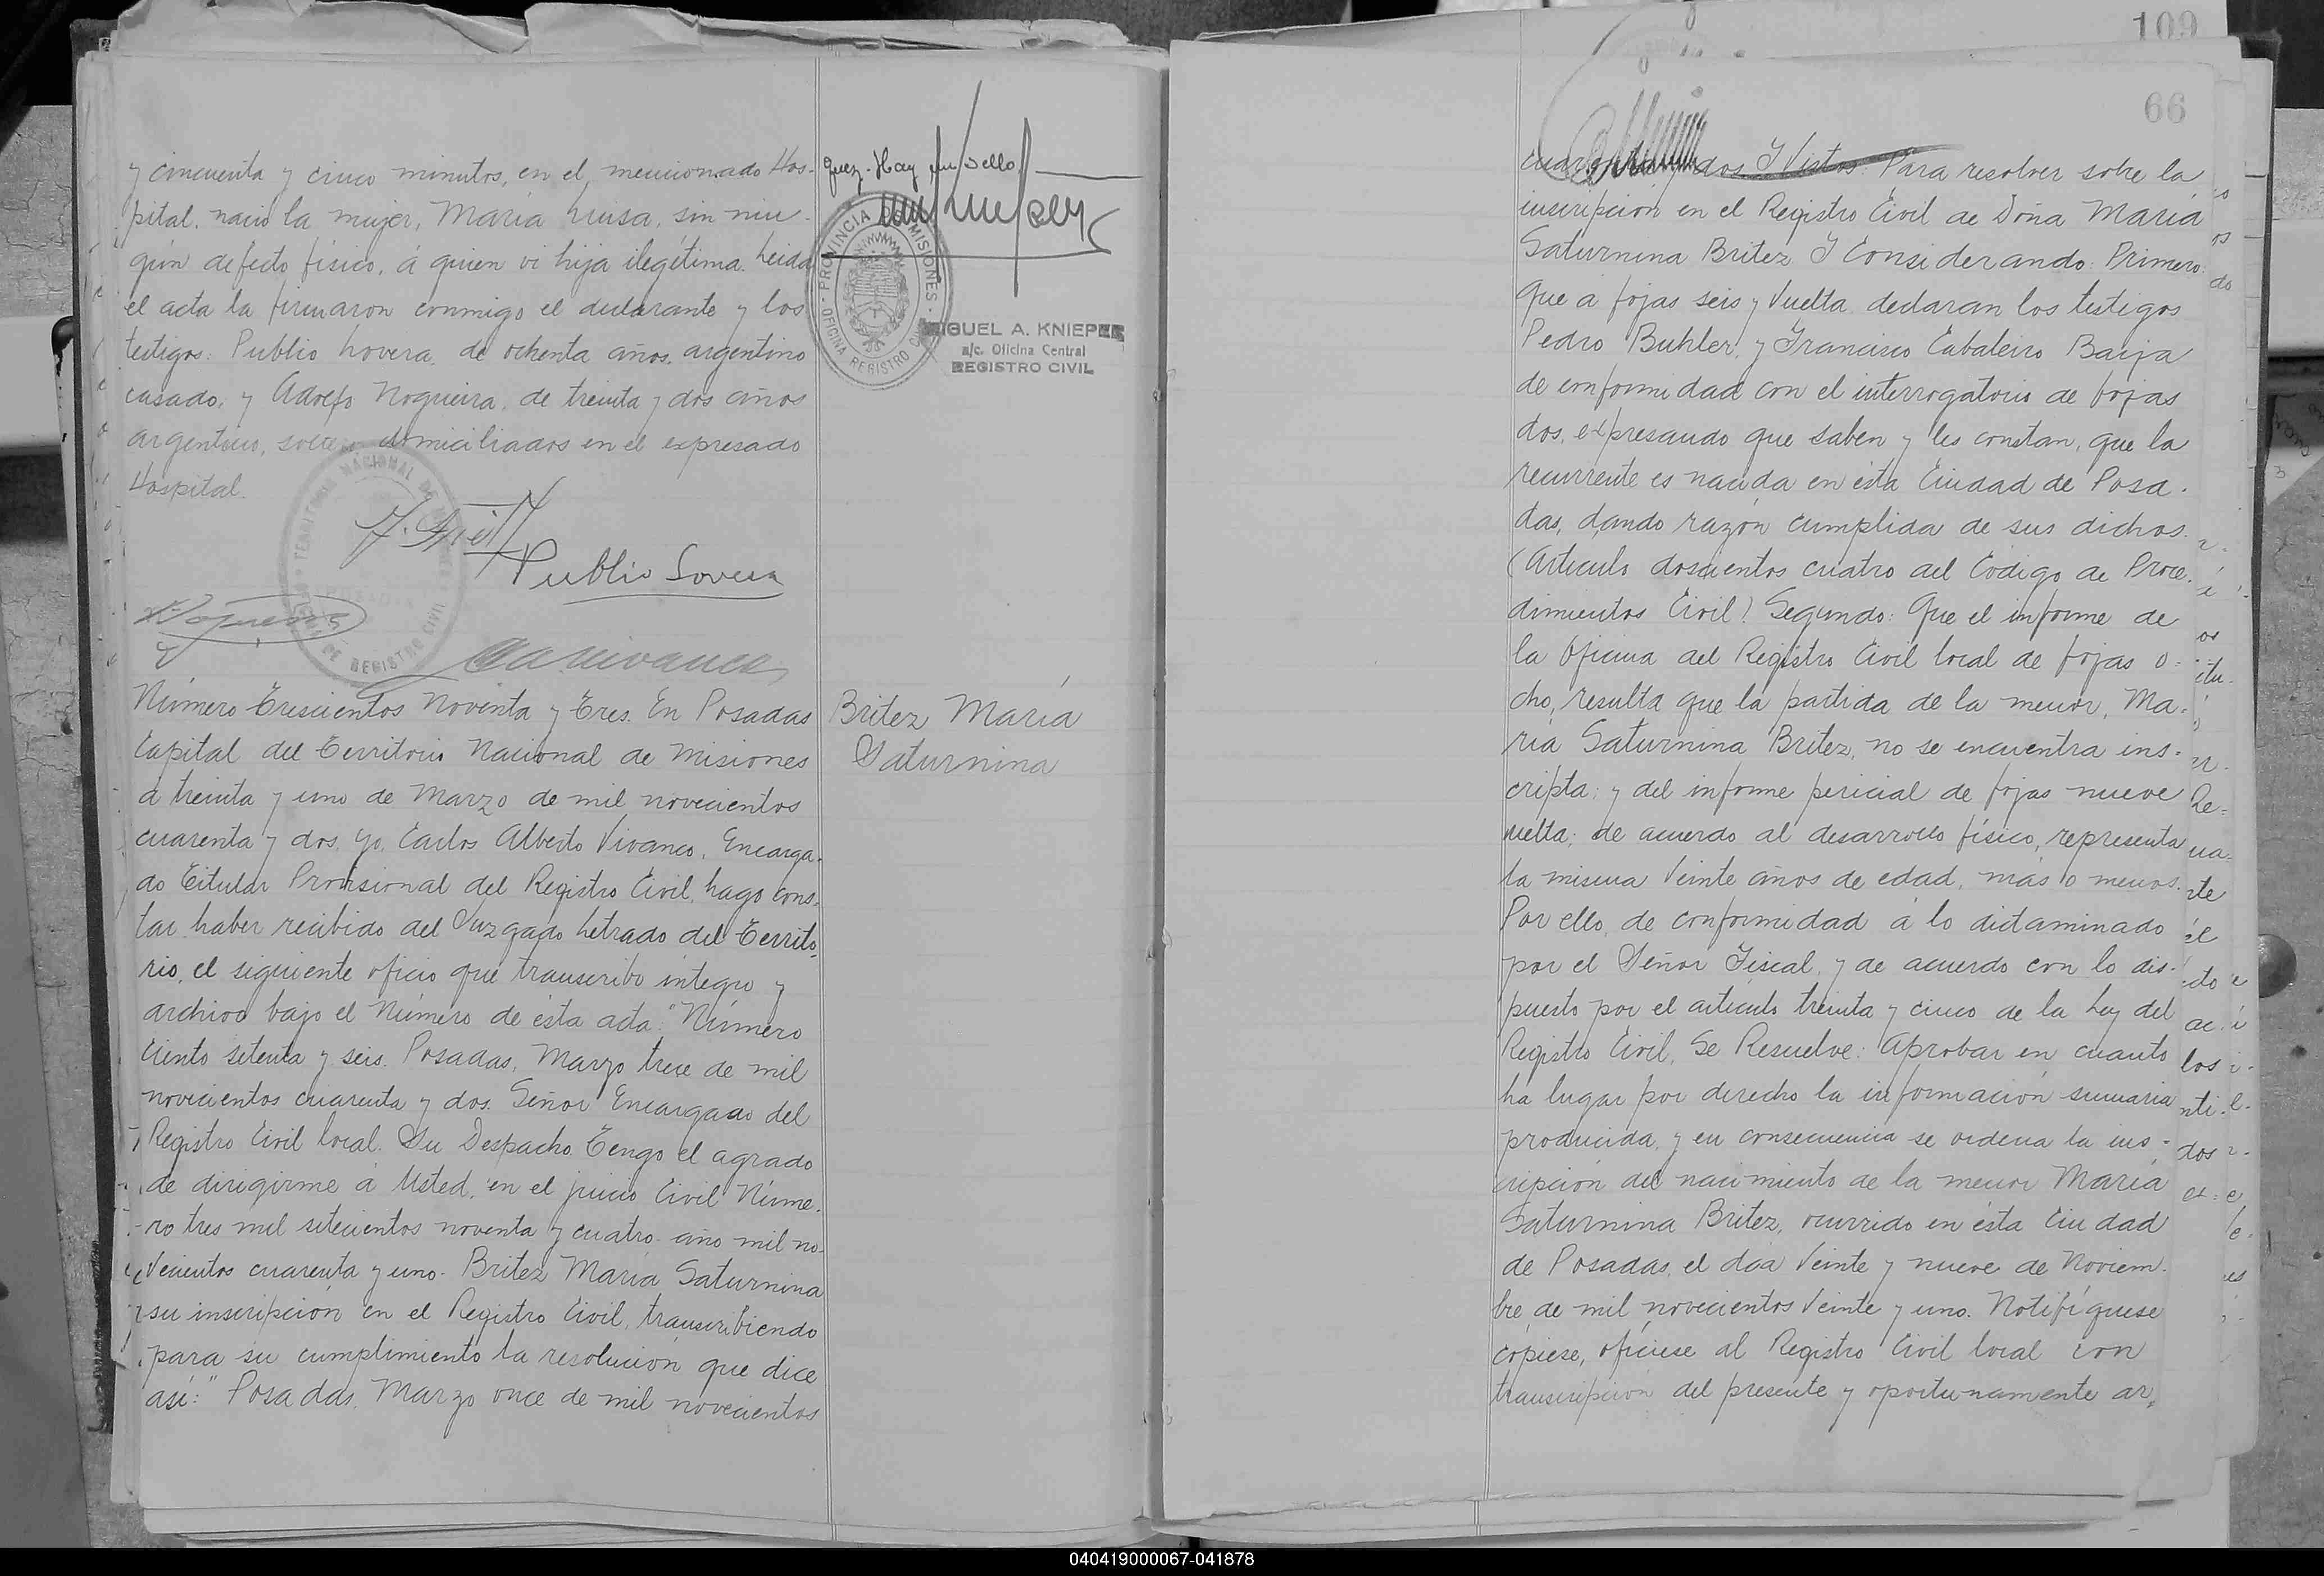 y cincuenta y cinco minutos, en el mencionado Hos-
pital. nació la mujer, María Luisa, sin nin-
gún defecto físico, á quien vi hija ilegítima. Leida
el acta la firmaron conmigo el declarante y los
testigos: Publio Lovera, de ochenta años, argentino
casado, y Adolfo Nogueira, de treinta y dos años
argentino, domiciliados en el expresado
Hospital.
Publio Lovera
Número Trescientos Noventa y Tres. En Posadas
Capital del Territorio Nacional de Misiones
a treinta y uno de Marzo de mil novecientos
cuarenta y dos, yo, Carlos Alberto Vivanco, Encarga-
do Titular Provisional del Registro Civil, hago cons-
tar haber recibido del Juzgado Letrado del Territo-
rio, el siguiente oficio que transcribo integro y
archivo bajo el Número de ésta acta: "Número
Ciento setenta y seis. Posadas, Marzo trece de mil
novecientos cuarenta y dos. Señor Encargado del
Registro Civil local. Su Despacho. Tengo el agrado
de dirigirme á Usted, en el juicio Civil Núme-
ro tres mil setecientos noventa y cuatro año mil no-
vecientos cuarenta y uno. Britez María Saturnina
su inscripción en el Registro Civil, transcribiendo
para su cumplimiento la resolución que dice
así: "Posadas, Marzo once de mil novecientos
quez. Hay un sello.
PROVINCIA DE MISIONES
OFICINA REGISTRO CIVIL
MIGUEL A. KNIEPER
a/c. Oficina Central
REGISTRO CIVIL
Britez María
Saturnina
109
66
cuarenta y dos Y Vistos: Para resolver sobre la
inscripción en el Registro Civil de Doña María
Saturnina Britez Y Considerando: Primero:
Que a fojas seis y vuelta declaran los testigos
Pedro Buhler, y Francisco Cabaleiro Barja
de conformidad con el interrogatorio de fojas
dos, expresando que saben y les constan, que la
recurrente es nacida en ésta Ciudad de Posa-
das, dando razón cumplida de sus dichos.
(Articulo doscientos cuatro del Código de Proce-
dimientos Civil) Segundo: Que el informe de
la Oficina del Registro Civil local de fojas o-
cho, resulta que la partida de la menor, Ma-
ría Saturnina Britez, no se encuentra ins-
cripta; y del informe pericial de fojas nueve
vuelta; de acuerdo al desarrollo físico, representa
la misma veinte años de edad, más o menos.
Por ello, de conformidad á lo dictaminado
por el Señor Fiscal, y de acuerdo con lo dis-
puesto por el artículo treinta y cinco de la Ley del
Registro Civil, Se Resuelve: Aprobar en cuanto
ha lugar por derecho la información sumaria
producida, y en consecuencia se ordena la ins-
cripción del nacimiento de la menor María
Saturnina Britez, ocurrido en ésta Ciudad
de Posadas, el día Veinte y nueve de Noviem-
bre de mil novecientos Veinte y uno. Notifíquese
cópiese, ofíciese al Registro Civil local con
transcripción del presente y oportunamente ar-
040419000067-041878